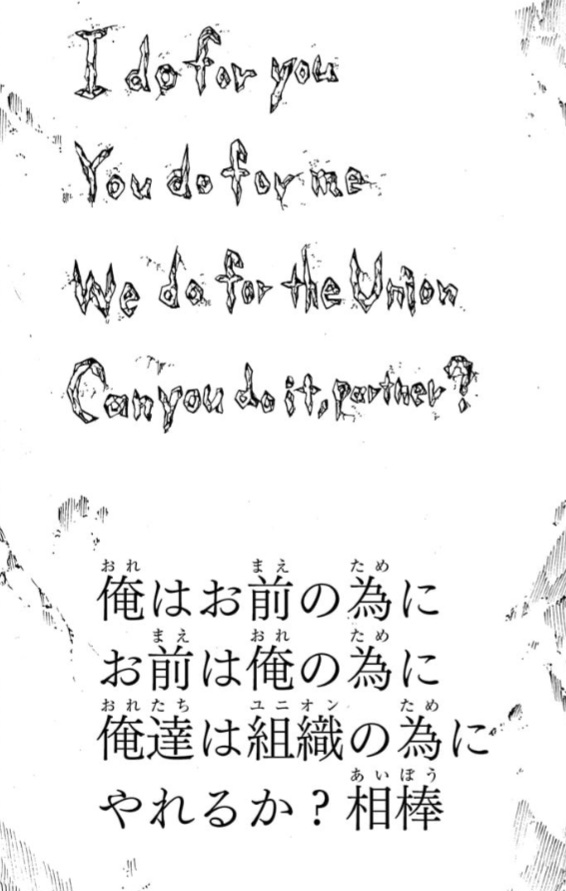 I do for you
You do for me
We do for the Union
Can you do it, partner?
おれ まえ ため
俺はお前の為に
まえ おれ ため
お前は俺の為に
おれたち ユニオン ため
俺達は組織の為に
あいぼう
やれるか？相棒